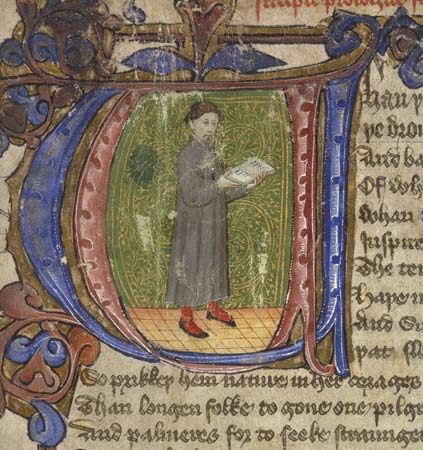 incipit prologus fa
han þ
þe drou
And ba
Of whi
Whan
Inspire
The ten
Haþe in
And
þat sle
So prikkeþ hem nature in her corages
Than longen folke to gone one pilgr
And palmeres for to seeke straunger